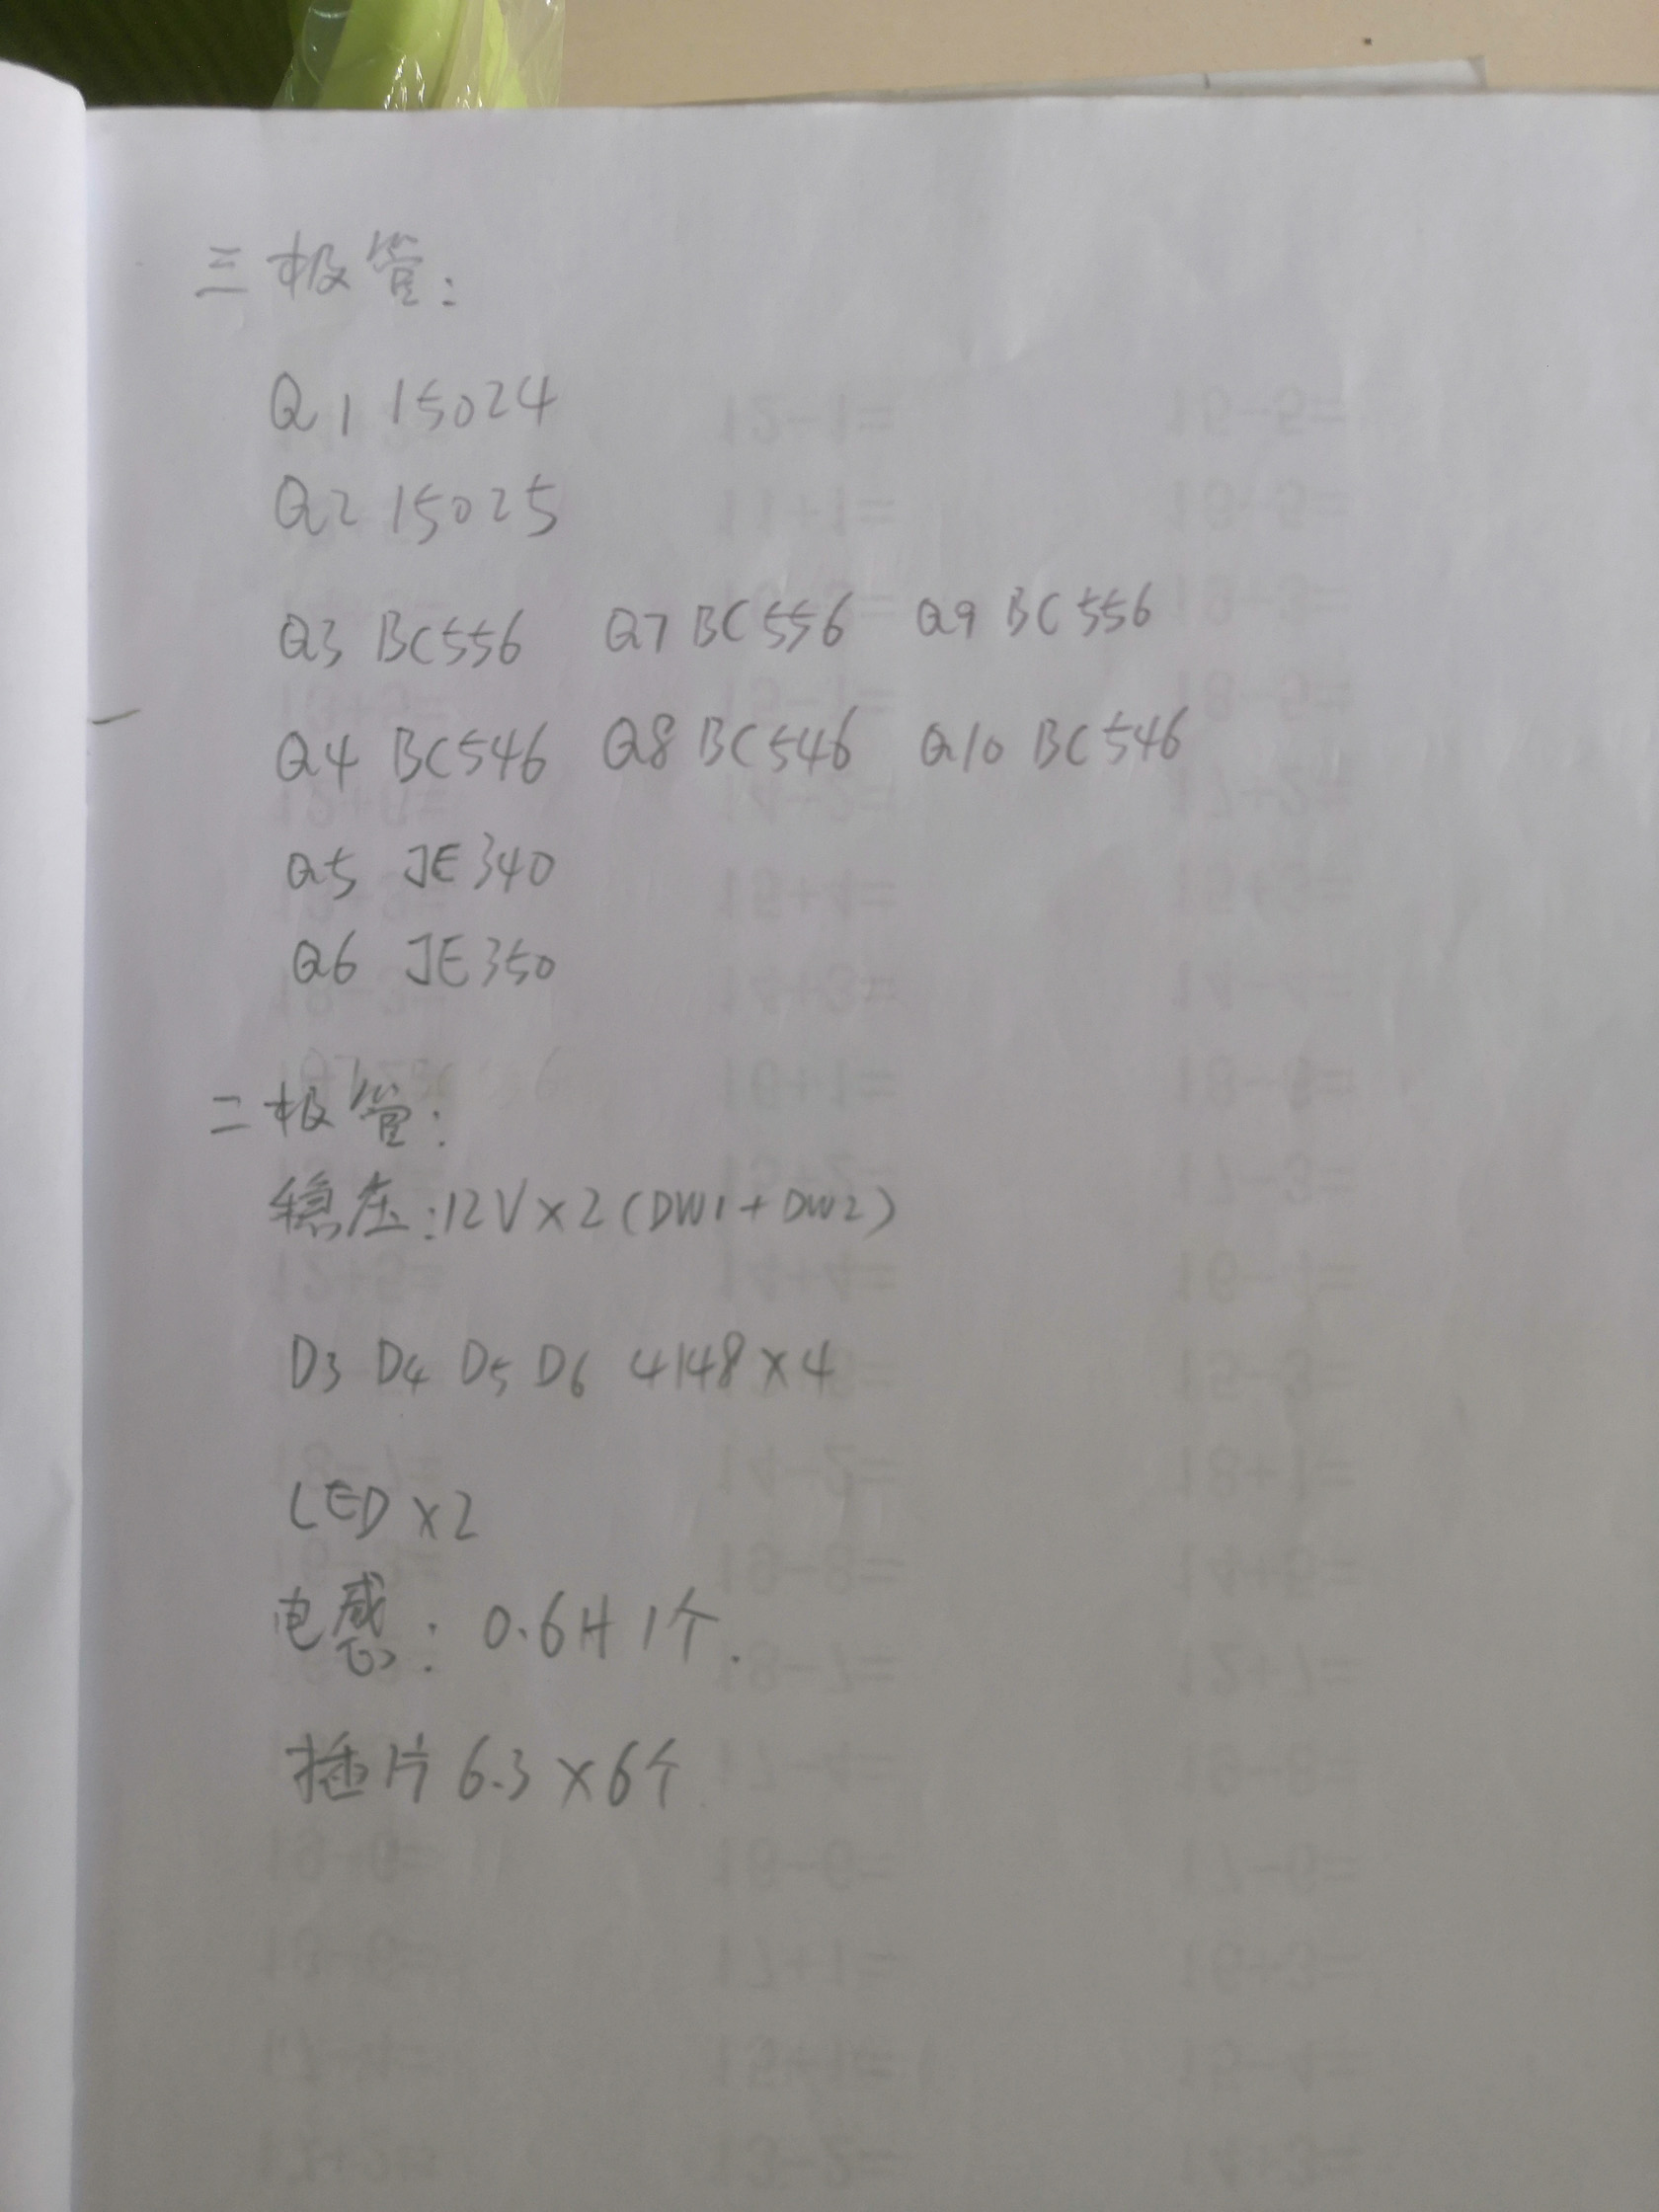 三极管:
Q1 15024
Q2 15025
Q3 BC556 Q7 BC556 Q9 BC556
Q4 BC546 Q8 BC546 Q10 BC546
Q5 JE340
Q6 JE350
二极管:
稳压:12V×2(DW1+DW2)
D3 D4 D5 D6 4148×4
LED×2
电感: 0.6H 1个.
插片 6.3×6个